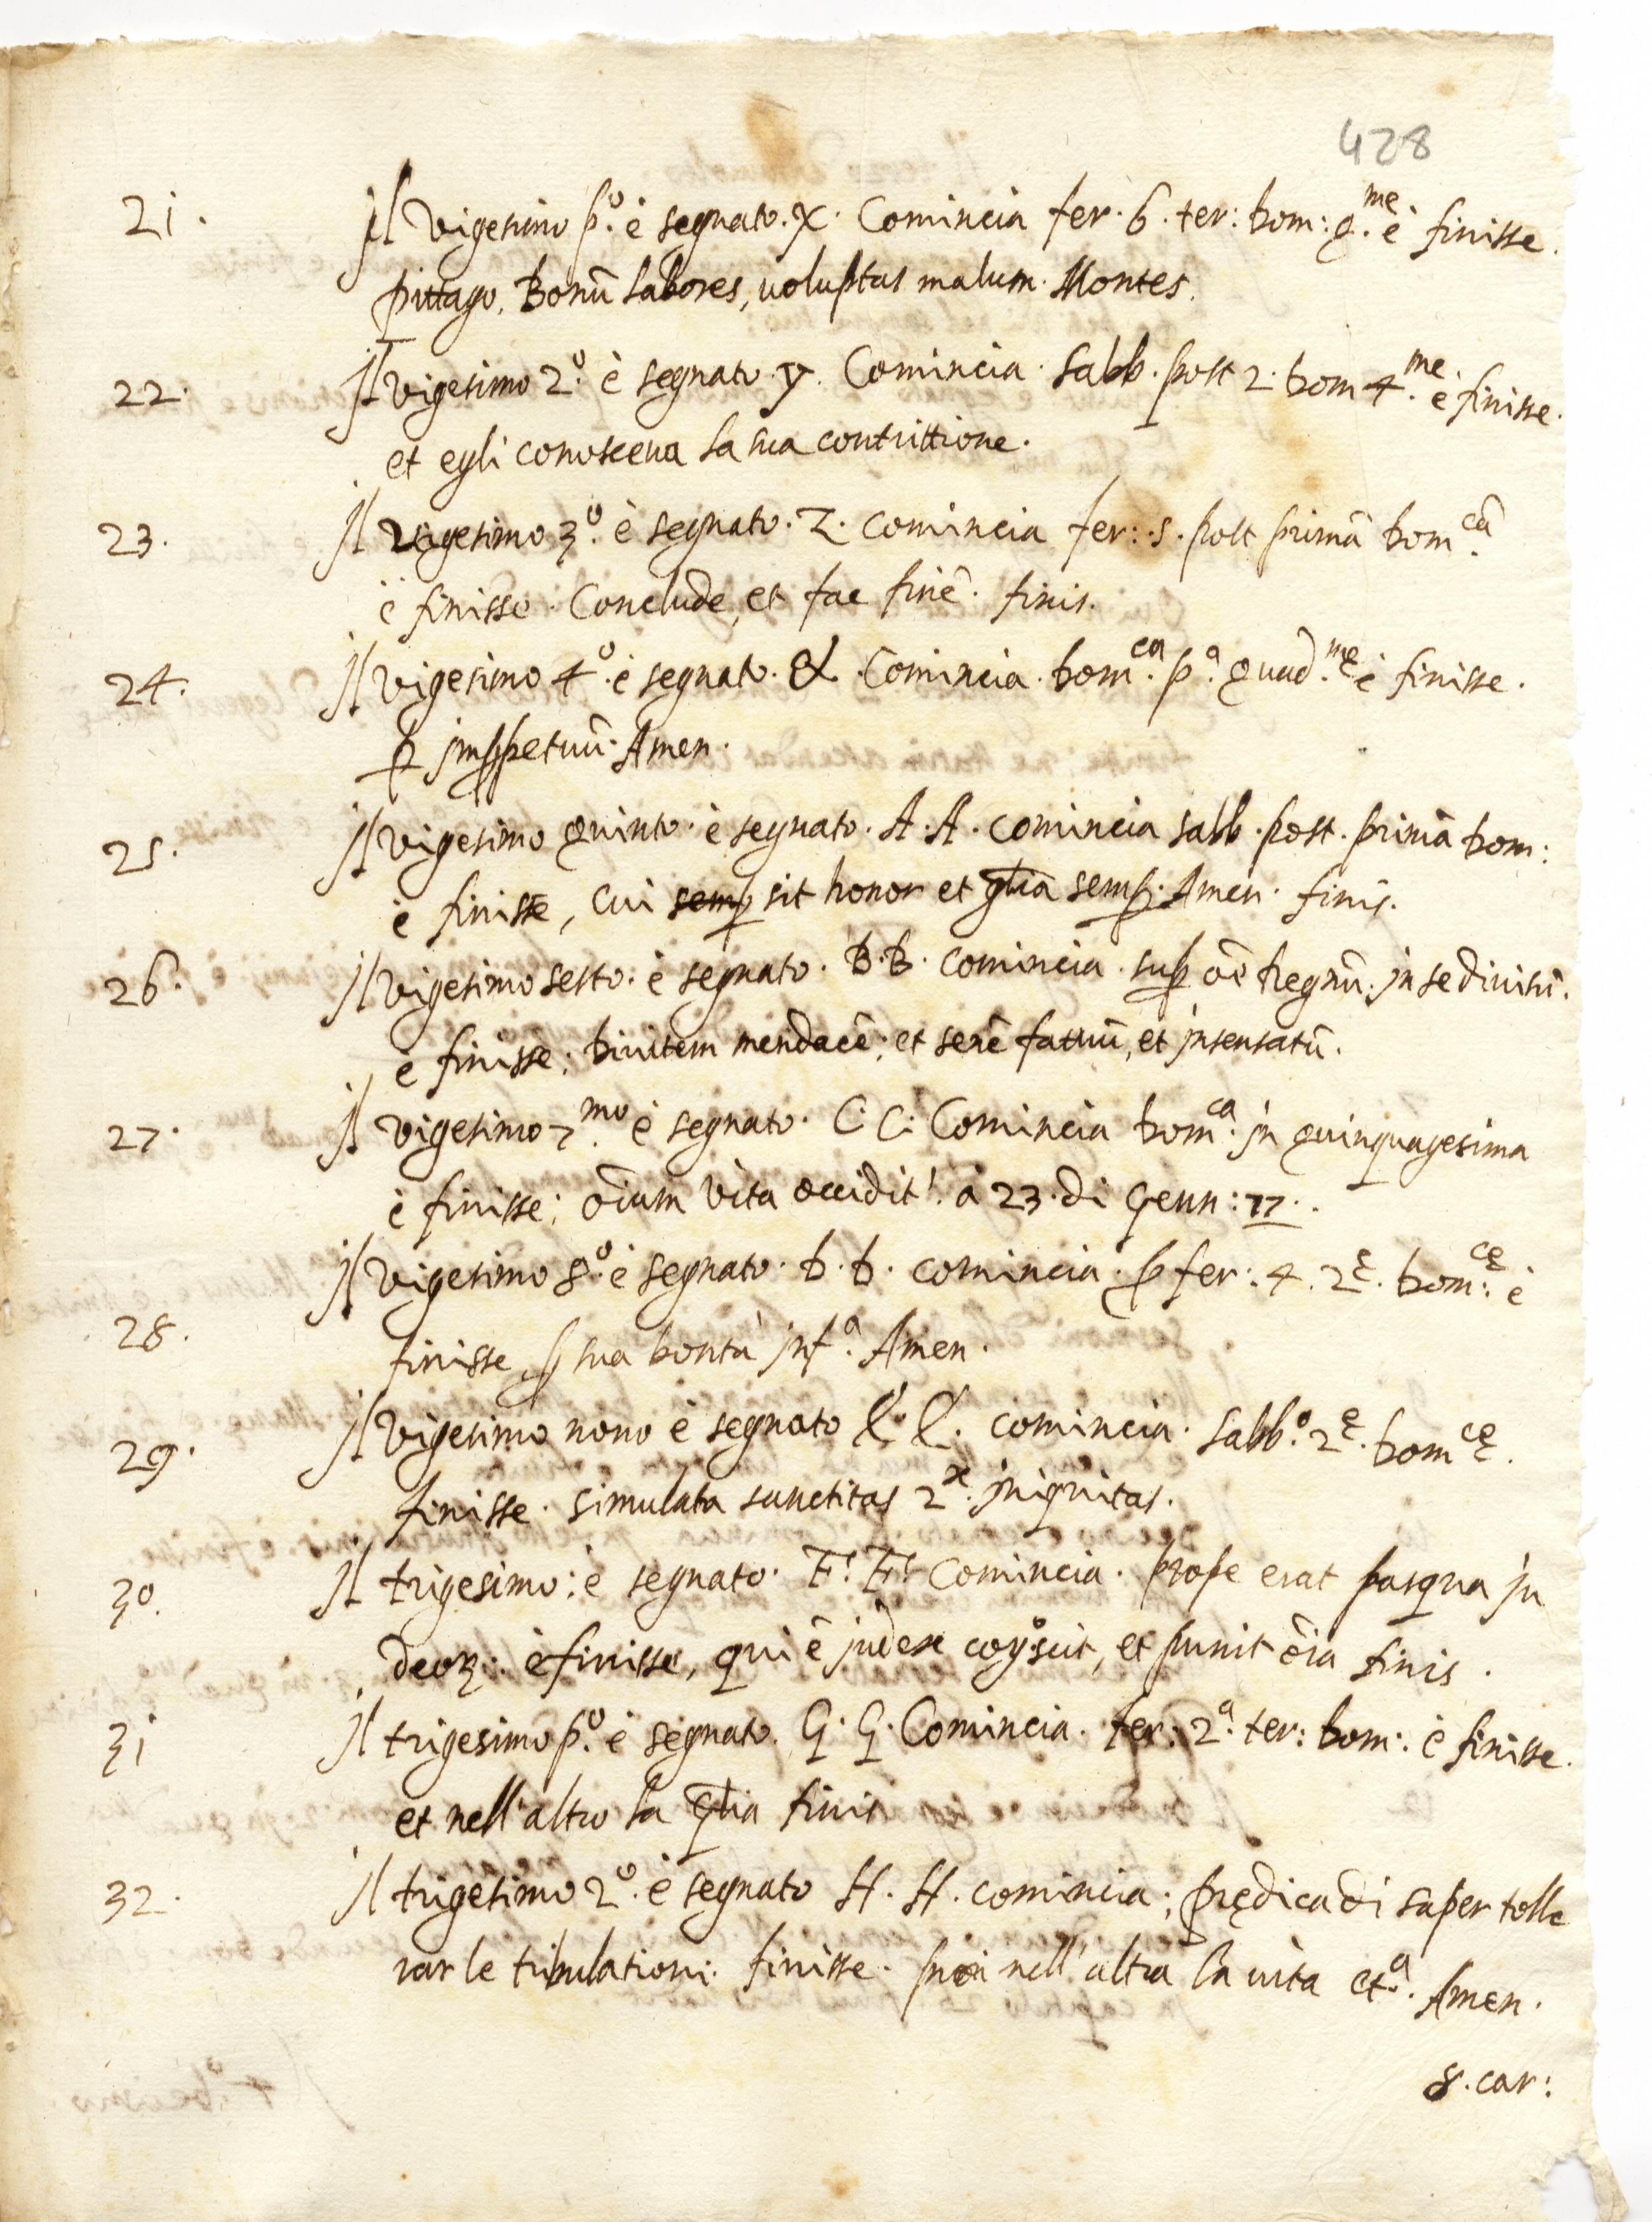 428
21. Il vigesimo p.º è segnato. X. Comincia fer. 6. ter: Dom: q.me è finisse.
pittago. Bonũ labores, voluptas malum. Montes.
22. Il vigesimo 2.º è segnato. y. Comincia. Sabb. post 2. Dom 4.me è finisse.
et egli conosceva la sua contrittione.
23. Il vigesimo 3.º è segnato. Z. Comincia fer: 5. post primã Dom.cã
è finisse. Conclude, et fac finẽ. finis.
24. Il vigesimo 4.º è segnato. &. Comincia. Dom.ca p.ª quad.mę è finisse.
ꝑ imꝑpetuũ. Amen.
25. Il vigesimo quinto. è segnato. A. A. comincia sabb. post. primã Dom:
è finisse, cui semꝑ sit honor et gl̃ia semꝑ. Amen. finis.
26. Il vigesimo sesto. è segnato. B. B. comincia. suꝑ oẽ Regnũ. in se divisũ.
è finisse; Divitem mendacẽ; et senẽ fatuũ, et insensatũ.
27. Il vigesimo 7.mo è segnato. C. C. Comincia Dom.ca in quinquagesima
è finisse; oĩum vita occidit! à 23. di Genn: 77.
28. Il vigesimo 8.º è segnato. D. D. comincia. ꝑ fer: 4. 2.ę Dom:cę è
finisse ꝑ sua bontà inf.ª Amen.
29. Il vigesimo nono è segnato E. E. comincia. Sabb.º 2.ę Domcę.
finisse. simulata sanctitas 2.x iniquitas.
30. Il trigesimo: è segnato. F. F. Comincia. prope erat pasqua Iu
deoꝝ. è finisse, qui ẽ iudex cogoscit, et punit oĩa finis.
31 Il trigesimo p.º è segnato. G. G. Comincia. fer: 2.ª ter: Dom: è finisse.
et nell'altro la gl̃ia finis
32. Il trigesimo 2.º è segnato H. H. comincia; prędica di saper tolle
rar le tribulationi. finisse. poi nell'altra la vita et.ª Amen.
8. car: